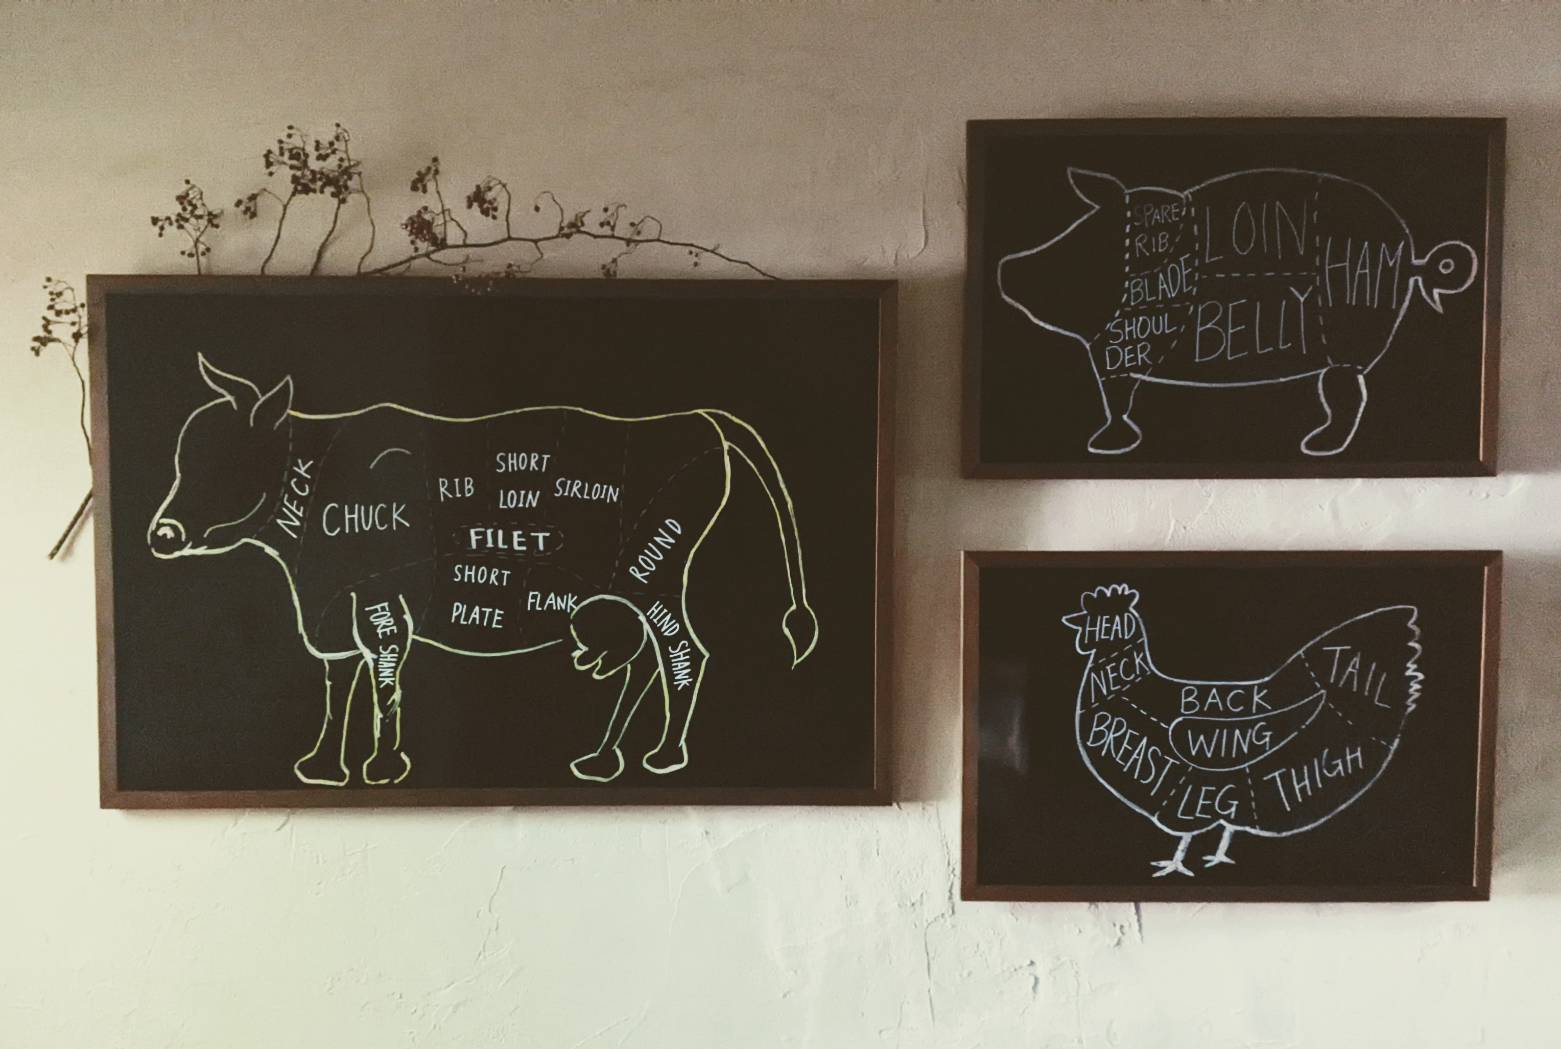 NECK
CHUCK
RIB
SHORT
LOIN
SIRLOIN
FILET
SHORT
PLATE
FLANK
ROUND
FORE SHANK
HIND SHANK
SPARE
RIB
BLADE
SHOUL
DER
LOIN
BELLY
HAM
HEAD
NECK
BACK
TAIL
WING
BREAST
LEG
THIGH